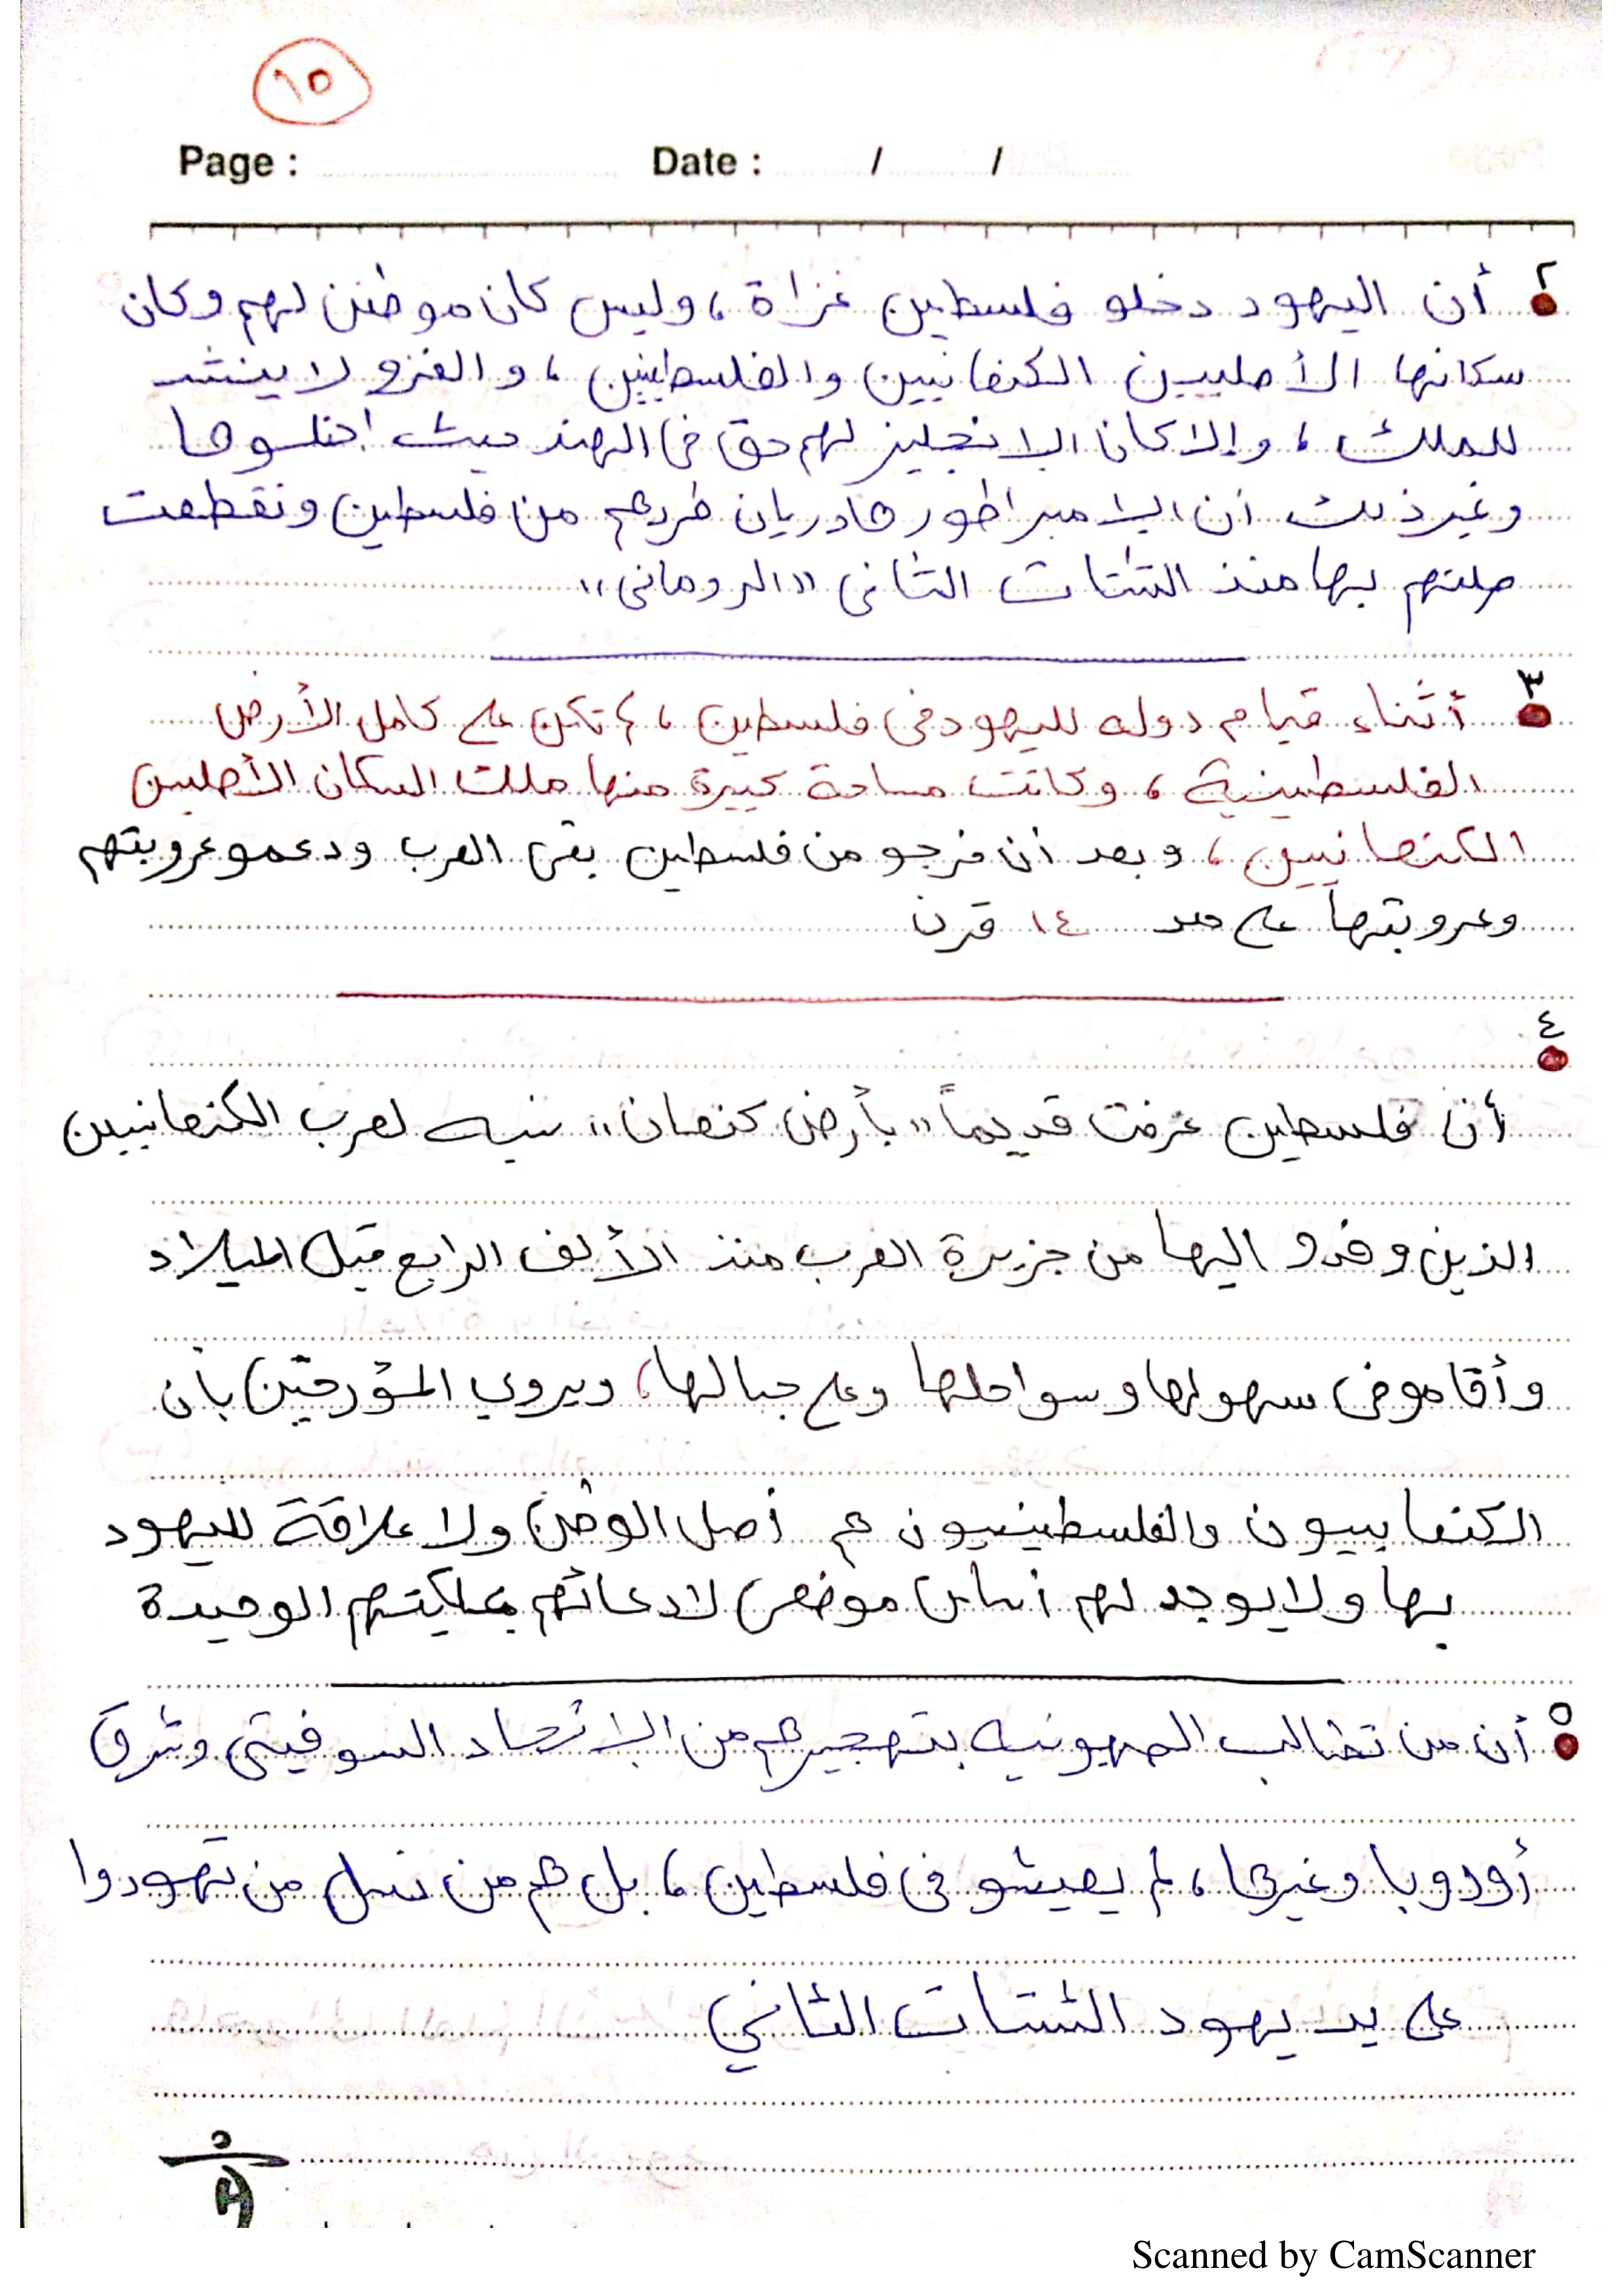 ١٥
Page : Date : / /
٢ أن اليهود دخلو فلسطين غزاة ، وليس كان موطنن لهم وكان
سكانها الأصليين الكنعانيين والفلسطينين ، و الغزو لا ينشد
للملك ، وإلا كان الإنجليز لهم حق في الهند حيث احتلوها
وغير ذلك أن الإمبراطور هادريان طردهم من فلسطين ونقطعت
صلتهم بها منذ الشتات الثاني "الروماني"
٣ أثناء قيام دوله لليهود في فلسطين ، لم تكن على كامل الأرض
الفلسطينية ، وكانت مساحة كبيرة منها ملك السكان الأصلين
الكنعانيين ، وبعد أن خرجو من فلسطين بقى العرب ودعمو عروبتهم
وعروبتها على مد ١٤ قرن
٤
أن فلسطين عرفت قديماً "بأرض كنعان" نسبه لعرب الكنعانيين
الذين وفدو اليها من جزيرة العرب منذ الألف الرابع قبل الميلاد
وأقامو في سهولها وسواحلها وعلى جبالها ، ويروي المؤرخين بأن
الكنعانييون والفلسطينيون هم أصل الوطن ولا علاقة لليهود
بها ولا يوجد لهم أساس موضعي لادعائهم بملكيتهم الوحيدة
٥ أن من تطالب الصهيونيه بتهجيرهم من الإتحاد السوفيتى وشرق
أوروبا وغيرها ، لم يعيشو في فلسطين ، بل هم من نسل من تهودوا
على يد يهود الشتات الثاني
Scanned by CamScanner